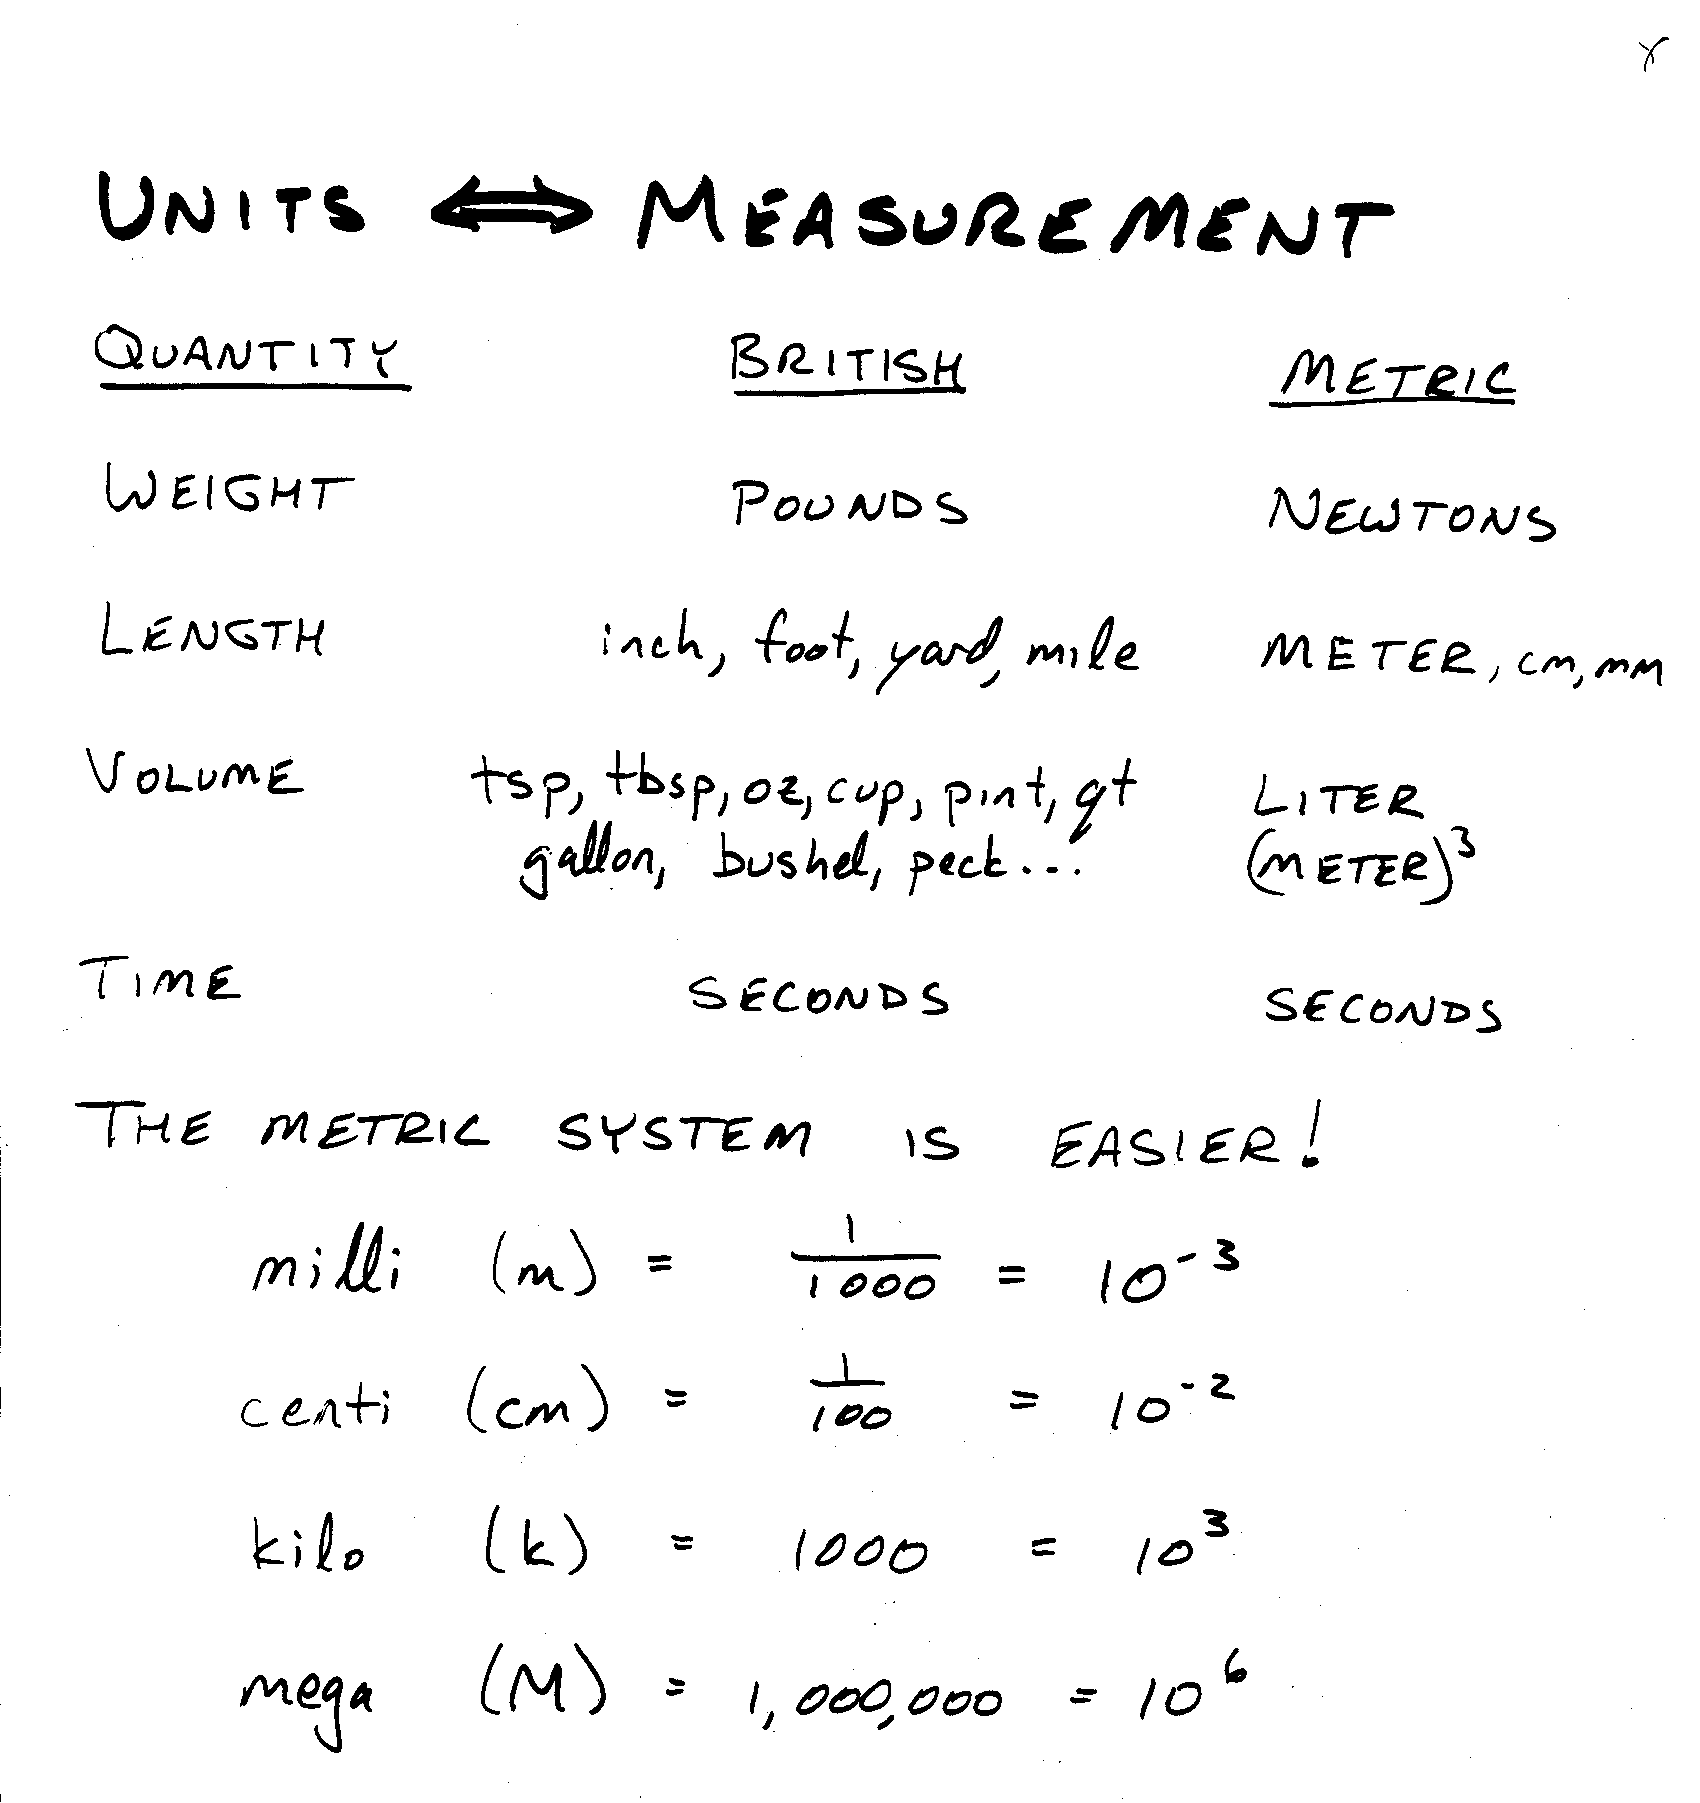 UNITS ⇔ MEASUREMENT
QUANTITY BRITISH METRIC
WEIGHT POUNDS NEWTONS
LENGTH inch, foot, yard, mile METER, cm, mm
VOLUME tsp, tbsp, oz, cup, pint, qt LITER
gallon, bushel, peck... (METER)³
TIME SECONDS SECONDS
THE METRIC SYSTEM IS EASIER!
milli (m) = 1/1000 = 10⁻³
centi (cm) = 1/100 = 10⁻²
kilo (k) = 1000 = 10³
mega (M) = 1,000,000 = 10⁶